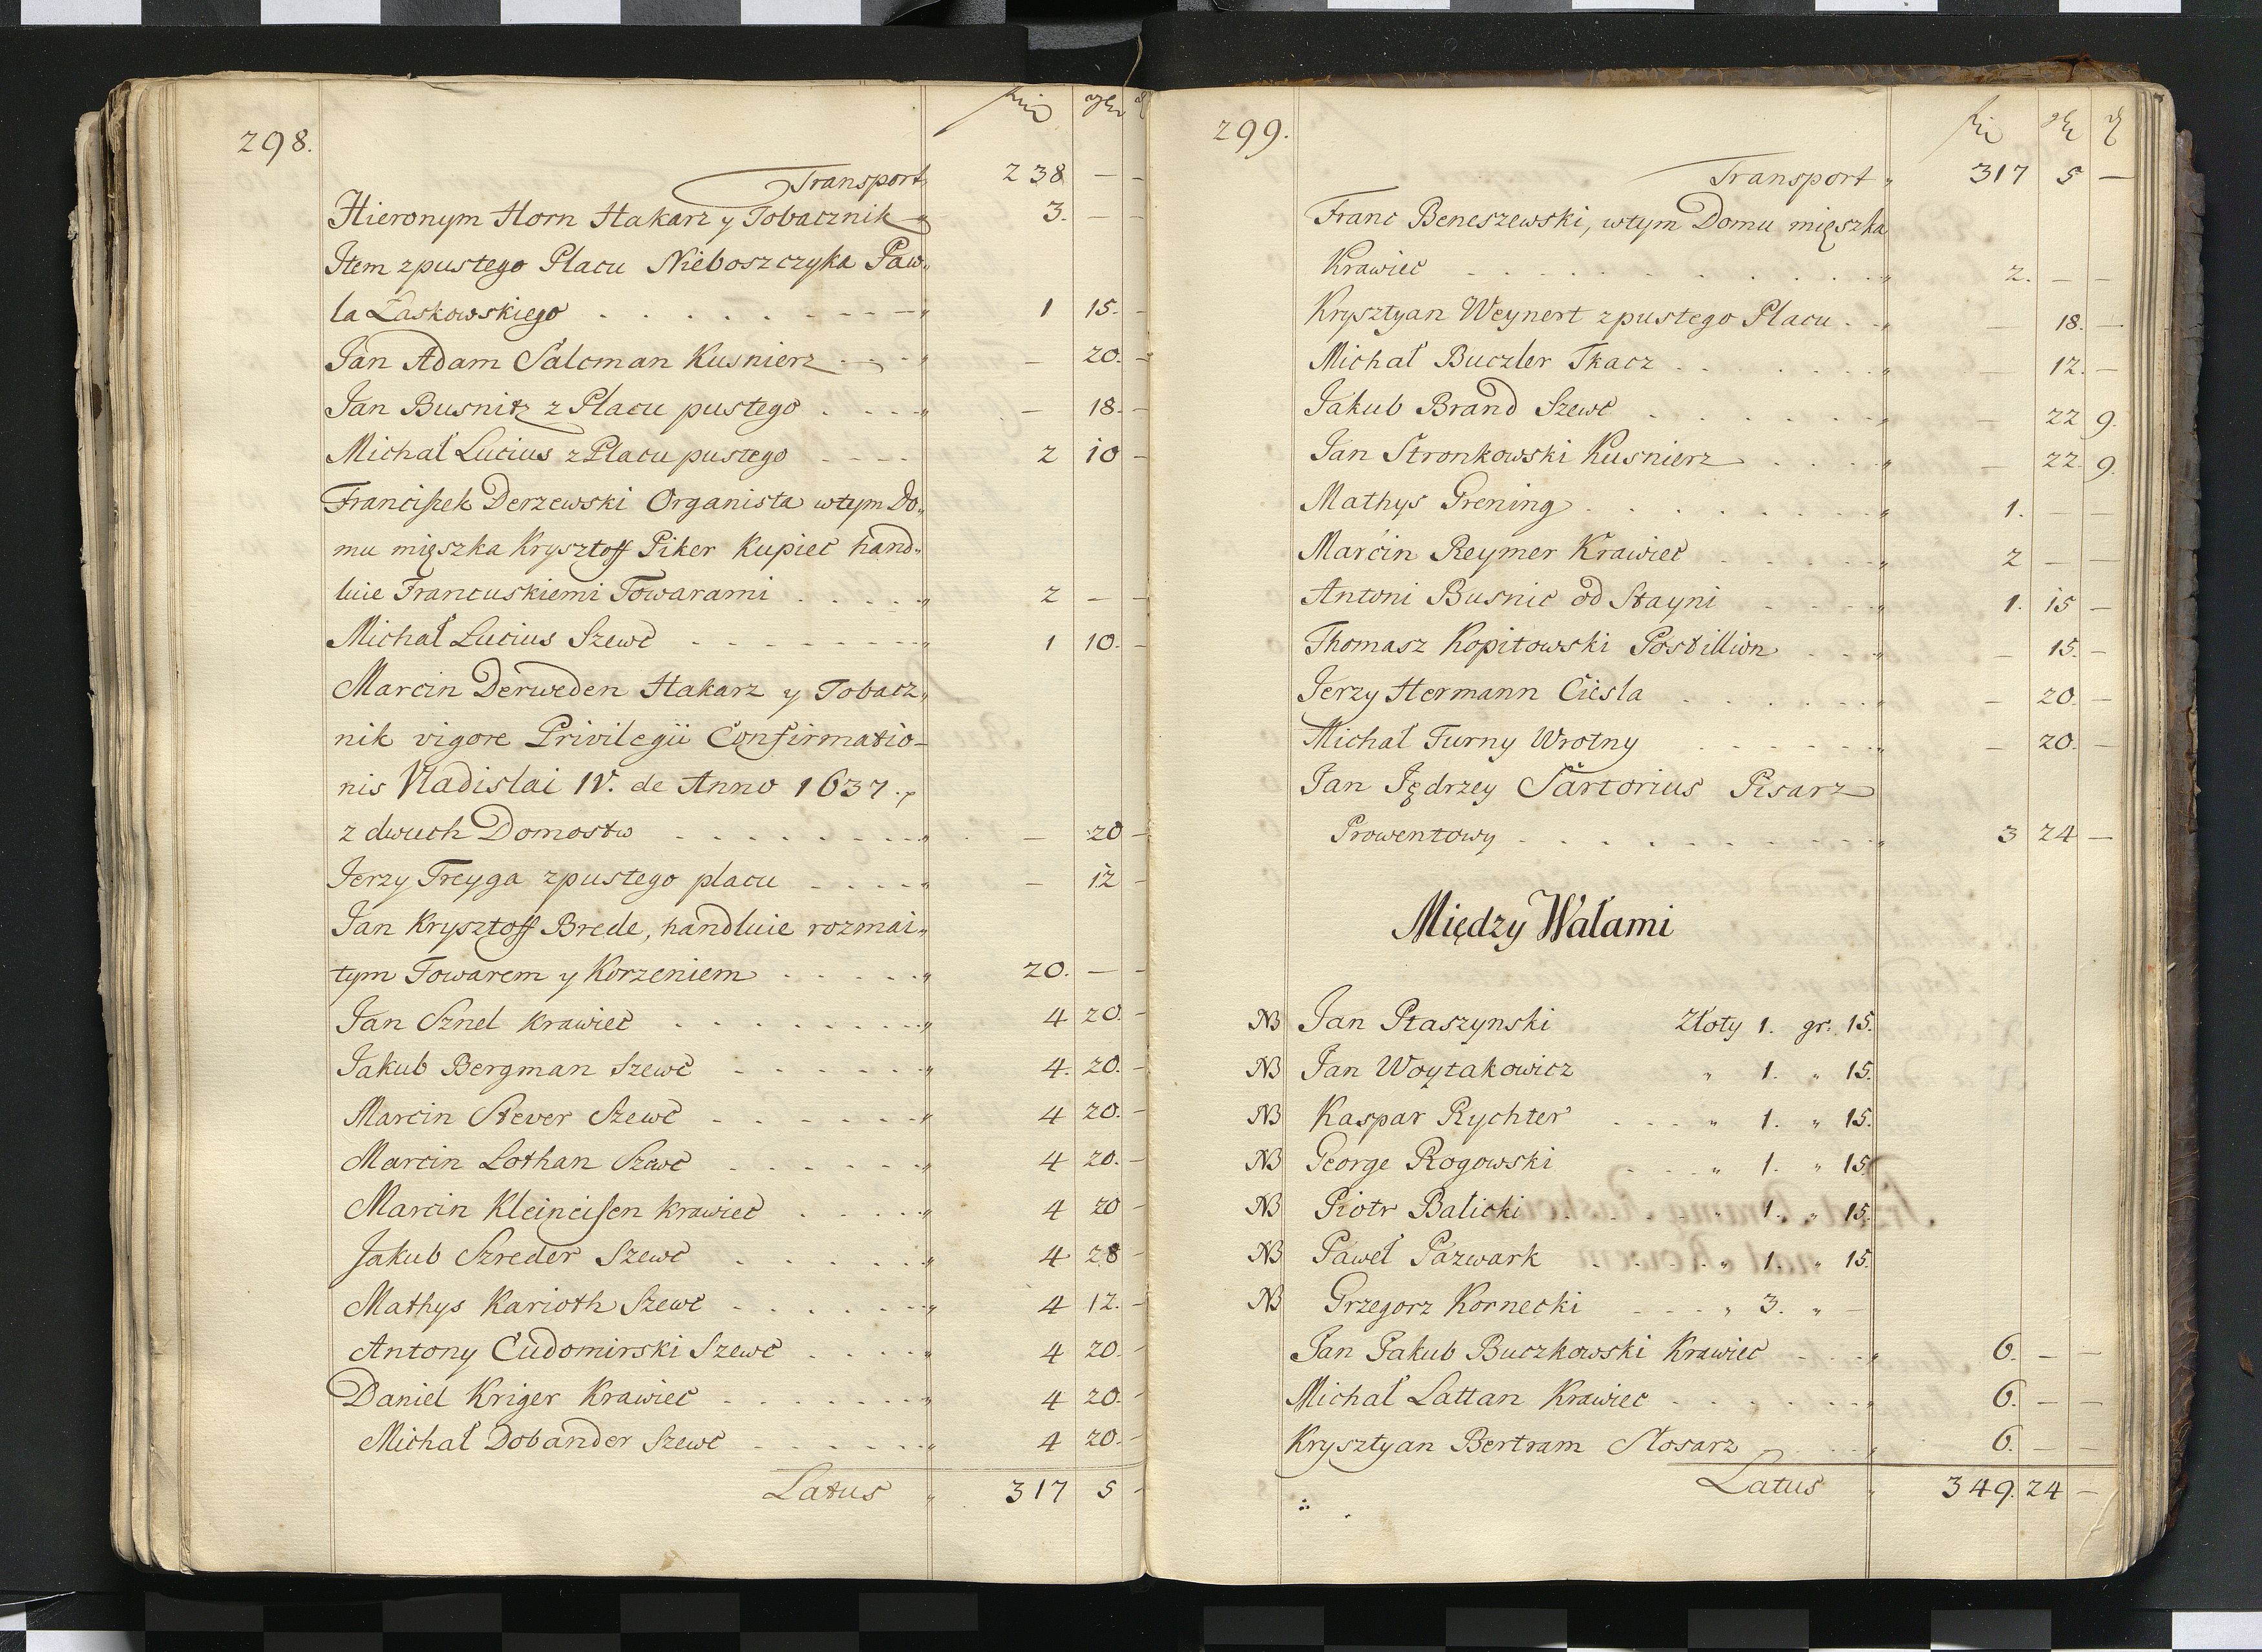 298.
fl gr
Transport 238 — —
Hieronym Horn Hakarz y Tobacznik 3. — —
Item z pustego Placu Nieboszczyka Paw„
la Laskowskiego . . . . . . . „ 1 15. —
Jan Adam Salcman Kusnierz „ — 20. —
Jan Busnitz z Placu pustego . . . . „ — 18. —
Michał Lucius z Placu pustego - - - - 2 10 —
Franciszek Derzewski Organista w tym Do„
mu mięszka Krysztoff Piker Kupiec hand„
luie Francuskiemi Towarami . . . . . „ 2 — —
Michał Lucius Szewc - - - - - - - „ 1 10. —
Marcin Derweden Hakarz y Tobacz„
nik vigore Privilegii Confirmatio-
nis Vladislai IV. de Anno 1637.
z dwuch Domostw . . . . . . . . „ — 20 —
Jerzy Freyga z pustego placu . . . . „ — 12 —
Jan Krysztoff Brede, handluie rozmai„
tym Towarem y Korzeniem . . . . . „ 20. — —
Jan Sznel Krawiec . . . . . . . . „ 4 20. —
Jakub Bergman Szewc - - - - - - „ 4. 20. —
Marcin Stever Szewc - - - - - - „ 4 20. —
Marcin Lothan Szewc . . . . . . „ 4 20. —
Marcin Kleineisen Krawiec . . . . . „ 4 20 —
Jakub Szreder Szewc . . . . . . „ 4 28 —
Mathys Karioth Szewc . . . . . . „ 4 12. —
Antony Cudomirski Szewc . . . . „ 4 20. —
Daniel Kriger Krawiec . . . . . . „ 4 20. —
Michał Dobander Szewc - - - - - - „ 4 20. —
Latus „ 317 5 —
299.
fl gr
Transport „ 317 5 —
Franc Beneszewski, w tym Domu mięszka
Krawiec . . . . . . . . . . „ 2. — —
Krysztyan Weynert z pustego Placu . . „ — 18. —
Michał Buczler Tkacz . . . . . . „ — 12. —
Jakub Brand Szewc . . . . . . „ — 22 9.
Jan Stronkowski Kusnierz . . . . „ — 22. 9.
Mathys Grening . . . . . . . . „ 1. — —
Marcin Reymer Krawiec . . . . . „ 2 — —
Antoni Busnic od Stayni . . . . . „ 1. 15 —
Thomasz Kopitowski Postillion . . . „ — 15. —
Jerzy Hermann Ciesla . . . . . . „ — 20. —
Michał Furny Wrotny . . . . . . „ — 20. —
Jan Jędrzey Sartorius Pisarz
Prowentowy . . . . . . . . . „ 3 24 —
Między Wałami
NB Jan Ptaszynski Złoty 1. gr. 15.
NB Jan Woytakowicz „ 1. „ 15.
NB Kaspar Rychter . . . „ 1. „ 15.
NB George Rogowski . . . „ 1. „ 15.
NB Piotr Balicki . . . . „ 1. „ 15.
NB Paweł Pazwark . . . . „ 1. „ 15.
NB Grzegorz Kornecki - - - „ 3. „ —
Jan Jakub Buczkowski Krawiec . . . „ 6. — —
Michał Lattan Krawiec . . . . . . „ 6. — —
Krysztyan Bertram Slosarz . . . . „ 6. — —
Latus „ 349. 24 —